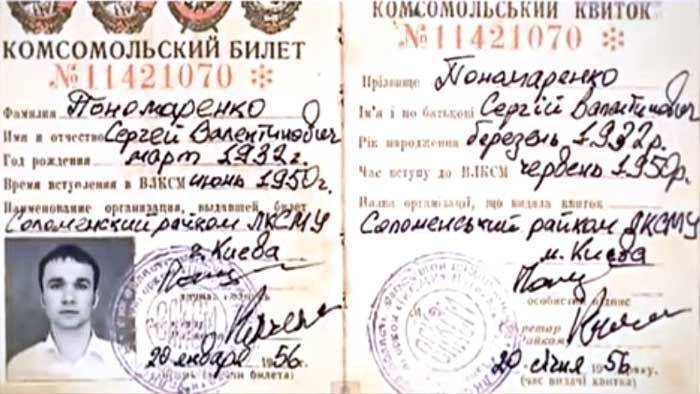 КОМСОМОЛЬСКИЙ БИЛЕТ
№ 11421070 *
Фамилия Пономаренко
Имя и отчество Сергей Валентинович
Год рождения март 1932 г.
Время вступления в ВЛКСМ июнь 1950г.
Наименование организации, выдавшей билет
Соломенский райком ЛКСМУ
г. Киева
20 января 1956 г.
КОМСОМОЛЬСЬКИЙ КВИТОК
№ 11421070 *
Прізвище Пономаренко
Ім'я і по батькові Сергій Валентинович
Рік народження березень 1932 р.
Час вступу до ВЛКСМ червень 1950р.
Назва організації, що видала квиток
Соломенський райком ЛКСМУ
м. Києва
особистий підпис
20 січня 1956 року
(час видачі квитка)